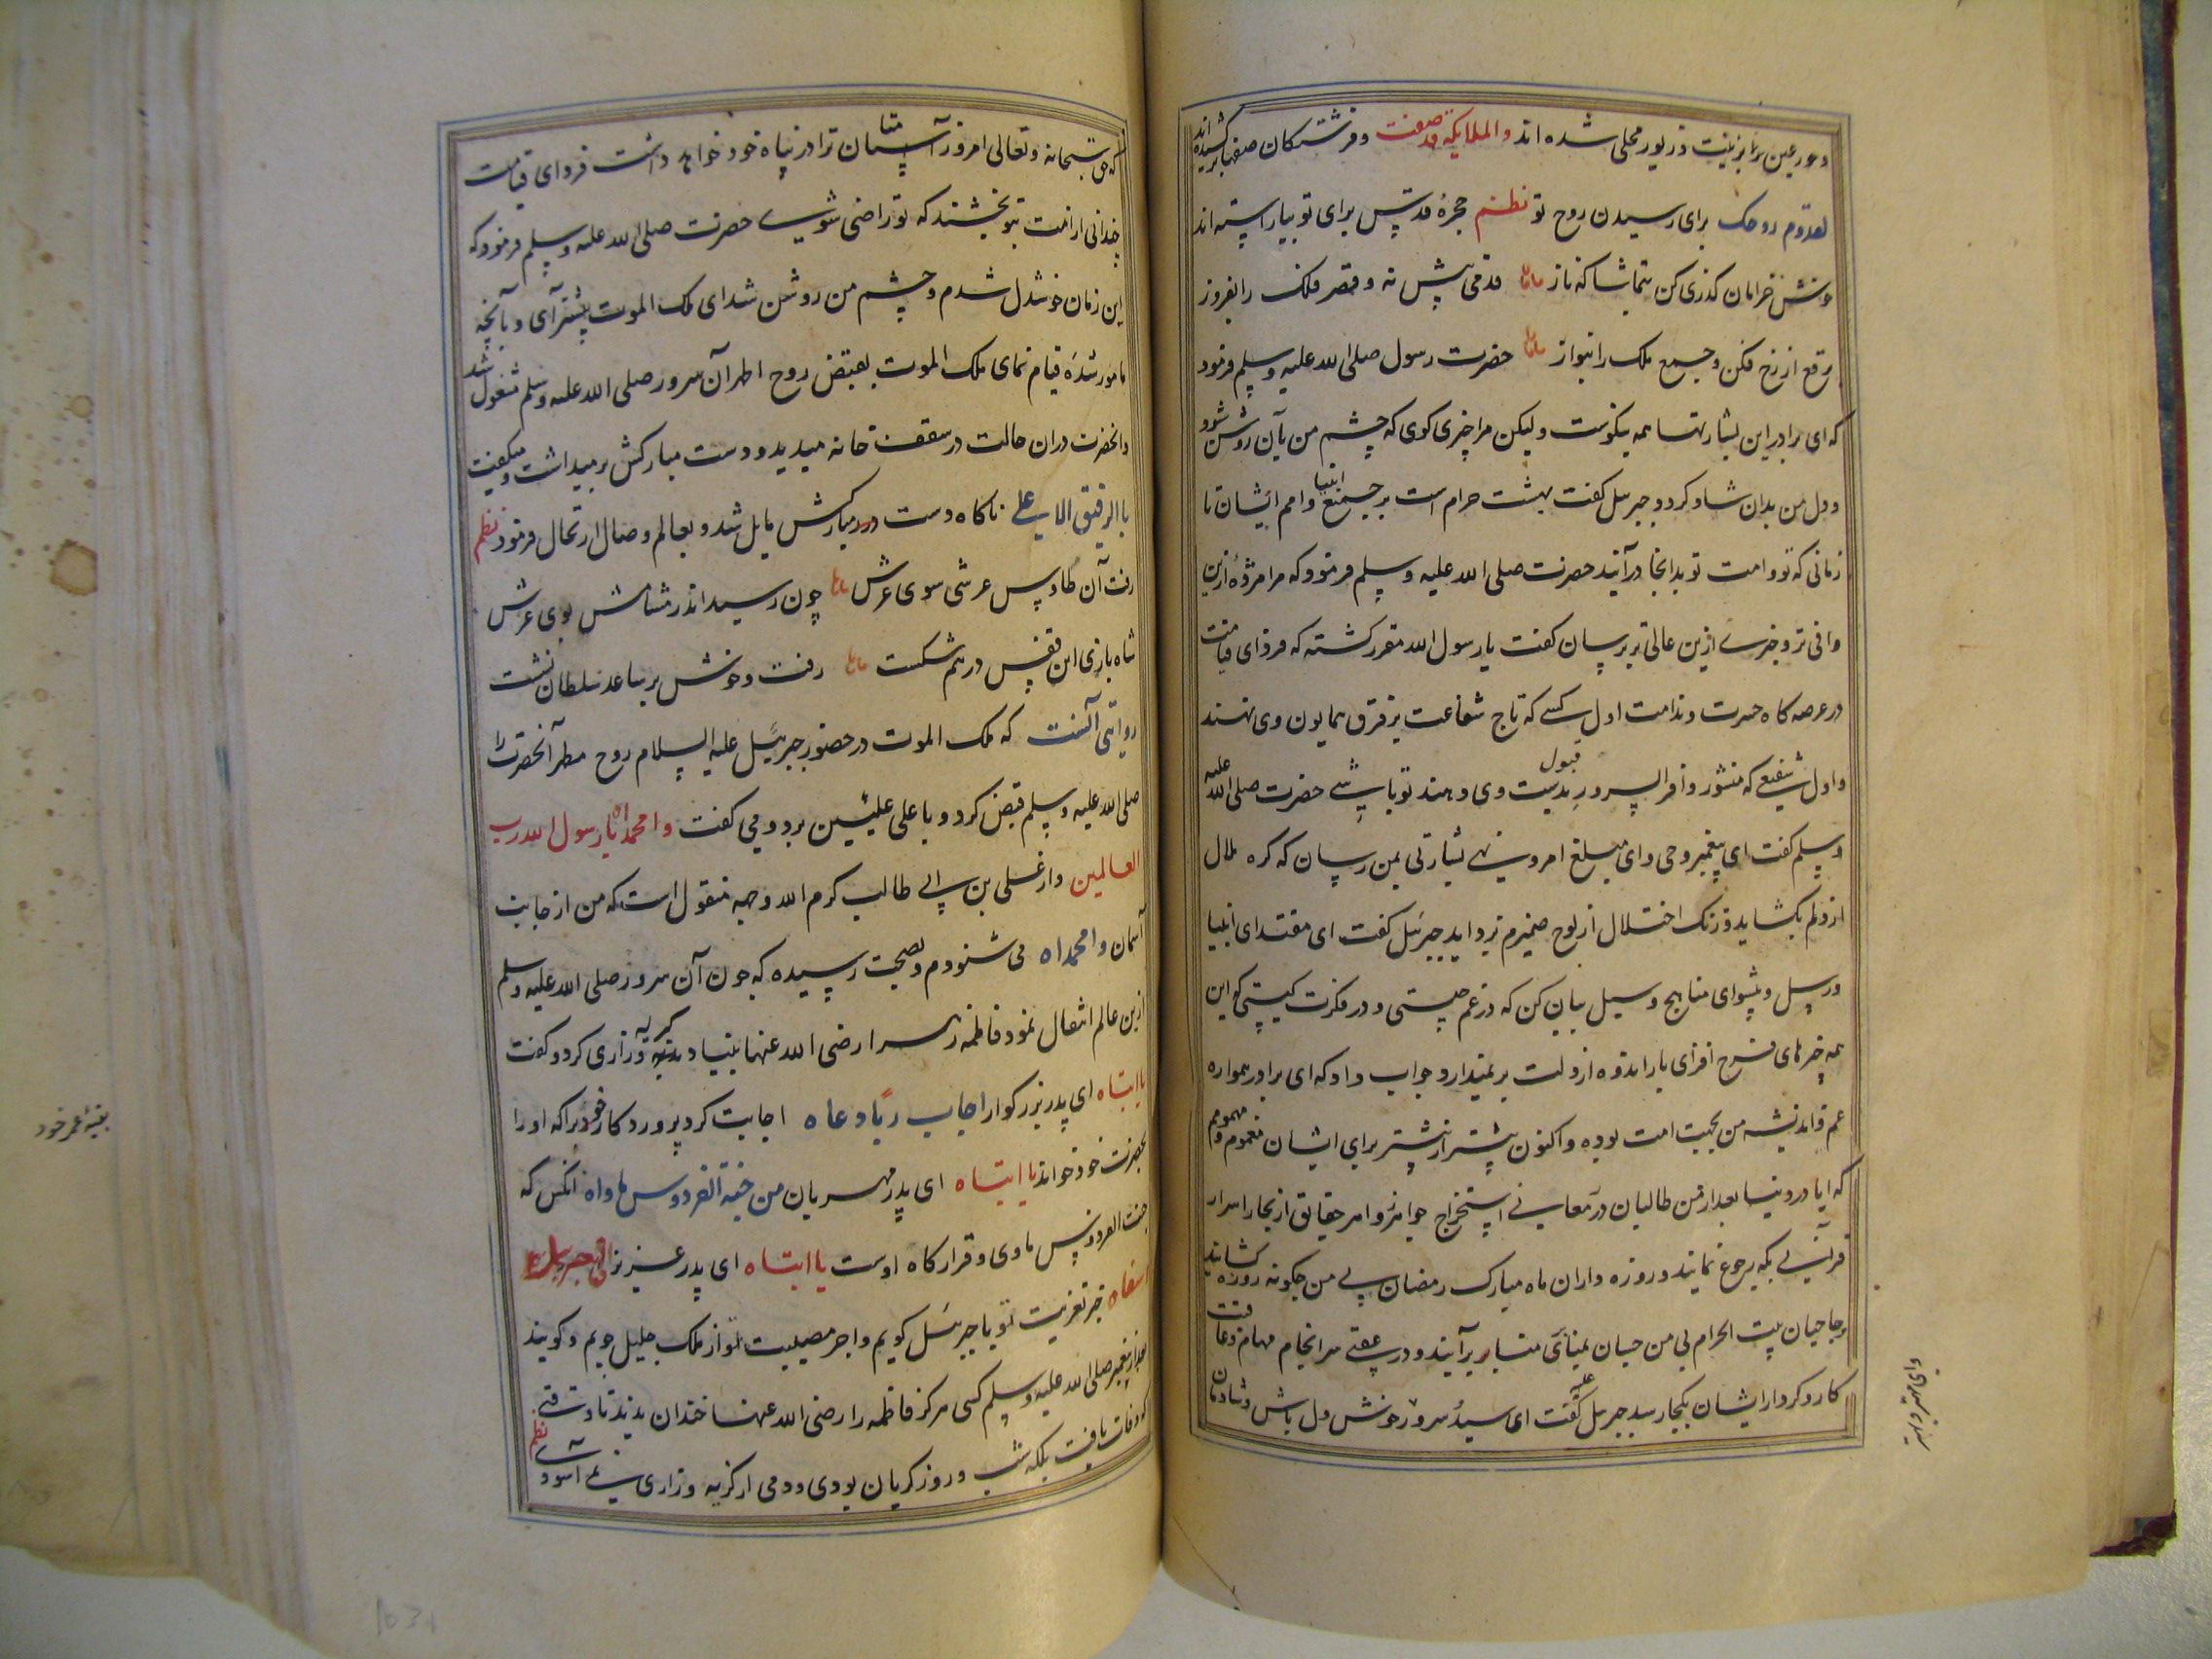 وحور عین برابر بزینت و زیور محلی شده اند والملایکة قد صفت وفرشتکان صفها برکشیده اند
لقدوم روحک برای رسیدن روح تو نظم حجرهٔ قدس برای تو بیاراسته اند
خوش خرامان کذری کن بتماشا که ناز قدمی پیش نه و قصر فلک را بفروز
برقع از رخ فکن و جمیع ملک را بنواز حضرت رسول صلی الله علیه وسلم فرمود
که ای برادر این بشارتها همه نیکوست ولیکن مرا خبری کوی که چشم من بآن روشن شود
و دل من بدان شاد کردد جبریل کفت بهشت حرام است بر جمیع انبیا و امم ایشان تا
زمانی که تو و امت تو بدانجا درآیند حضرت صلی الله علیه وسلم فرمود که مرا مژدهٔ ازین
وافی تر و خبرے ازین عالی تر برسان کفت یا رسول الله مقرر کشته که فردای قیامت
در عرصه کاه حسرت و ندامت اول کسے که تاج شفاعت بر فرق همایون وی نهند
و اول شفیع که منشور وافر السرور قبول بدست وی دهند تو باشے حضرت صلی الله علیه
وسلم کفت ای پیغمبر وحی و ای مبلغ امر و نهے بشارتی بمن رسان که کره ملال
از دلم بکشاید و زنک اختلال از لوح ضمیرم بزداید جبرئیل کفت ای مقتدای انبیا
و رسل و پیشوای مناهج و سبل بیان کن که در غم چیستی و در فکرت کیستی کو این
همه خبرهای فرح افزای بار اندوه از دلت بر نمیدارد جواب داد که ای برادر همواره
غم و اندیشه من بجهت امت بوده و اکنون بیشتر از پیشتر برای ایشان مغموم و مهمومم
که ایا در دنیا بعد از من طالبان در معانے استخراج جواهر زواهر حقایق از بحار اسرار
قرآنے بکه رجوع نمایند و روزه داران ماه مبارک رمضان بے من چکونه روزه کشایند
و حاجیان بیت الحرام بی من حسان بمنای منا بر برآیند و در عقبے سرانجام مهام و عاقبت
کار و کردار ایشان بکجا رسد جبریل علیه کفت ای سید سرور خوش دل باش و شادمان
که حق سبحانه وتعالی امروز امتان ترا در پناه خود خواهد داشت فردای قیامت
چندانی از امت بتو بخشند که تو راضی شوے حضرت صلی الله علیه وسلم فرمود که
این زمان خوشدل شدم و چشم من روشن شد ای ملک الموت پیشتر آی و بآنچه
مامور شدهٔ قیام نمای ملک الموت بقبض روح اطهر آن سرور صلی الله علیه وسلم مشغول شد
و انحضرت در ان حالت در سقف خانه میدید و دست مبارکش بر میداشت و میکفت
باالرفیق الاعلی ناکاه دست مبارکش مایل شد و بعالم وصال ارتحال فرمود نظم
رفت آن طاوس عرشی سوی عرش چون رسید اندر مشامش بوی عرش
شاه بازی این قفس درهم شکست رفت و خوش بر ساعد سلطان نشست
روایتی آنست که ملک الموت در حضور جبرئیل علیه السلام روح مطهر آنحضرت را
صلی الله علیه وسلم قبض کرد و با علی علیین برد و می کفت وامحمداه یا رسول الله رب
العالمین و از علی بن ابی طالب کرم الله وجهه منقول است که من از جانب
آسمان وامحمداه می شنودم و بصحت رسیده که چون آن سرور صلی الله علیه وسلم
ازین عالم انتقال نمود فاطمه زهرا رضی الله عنها بنیاد کریه و زاری کرد و کفت
یا ابتاه ای پدر بزرکوار اجاب ربا دعاه اجابت کرد پرورد کار خود را که او را
بحضرت خود خواند یا ابتاه ای پدر مهربان من جنة الفردوس ماواه انکس که
جنت الفردوس ماوی و قرار کاه اوست یا ابتاه ای پدر عزیز الی جبریل
انعاه خبر تعزیت تو با جبرئیل کویم و اجر مصیبت تو از ملک جلیل جویم و کویند
بعد از پیغمبر صلی الله علیه وسلم کسی هرکز فاطمه را رضی الله عنها خندان ندید تا وقتے
که وفات یافت بلکه شب و روز کریان بودی و دمی از کریه و زاری نمے آسودے نظم
بقیهٔ عمر خود